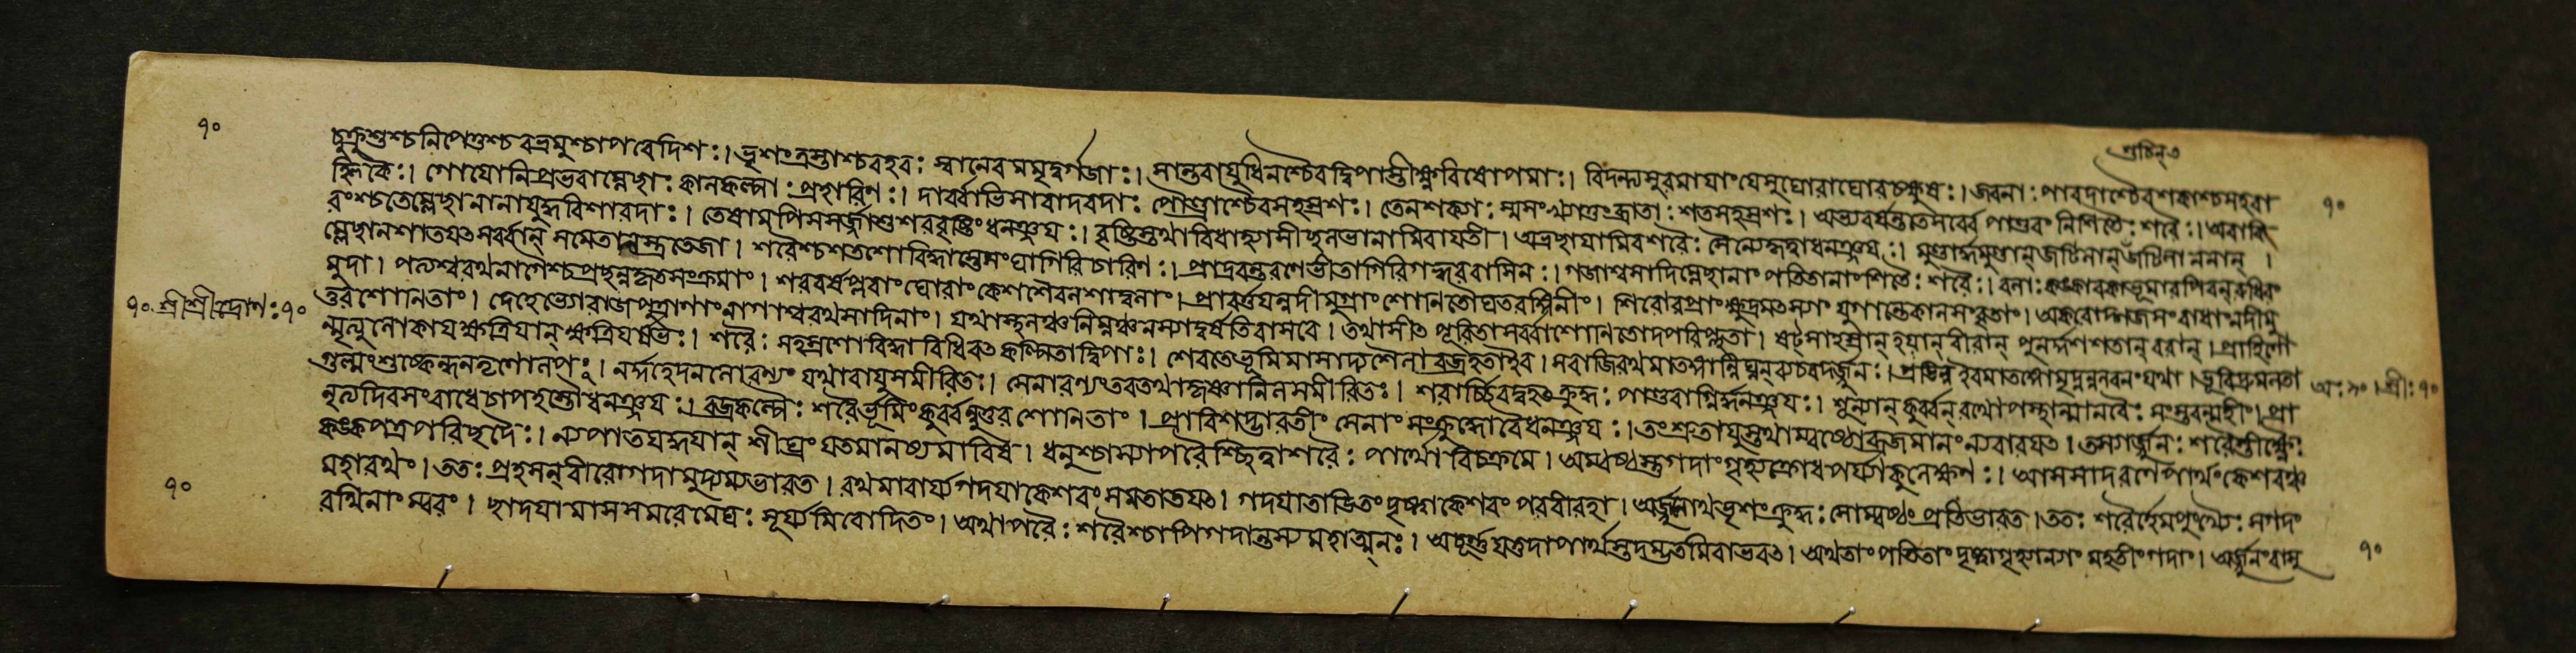 প্রভিন্ন
৭০
চুক্রুশুশ্চনিপেতুশ্চবভ্রমুশ্চাপরেদিশঃ। ভৃশংত্রস্তাশ্চবহবঃ স্বানেবমমৃদুর্গজাঃ। সান্তরাযুধিনশ্চৈবদ্বিপাস্তীক্ষ্ণবিষোপমাঃ। বিদন্ত্যসুরমাযাংযেসুঘোরাঘোরচক্ষুষঃ। জবনাঃ পারদাশ্চৈবশকাশ্চসহবা
হ্লিকৈঃ। গোযোনিপ্রভবাম্লেছাঃ কালকল্পাঃ প্রহারিণঃ। দার্ব্বাভিসারাদরদাঃ পৌণ্ড্রাশ্চৈবসহস্রশঃ। তেনশক্যাঃ স্মসংখ্যাতুংব্রাতাঃ শতসহস্রশঃ। অভ্যবর্ষন্ততেসর্ব্বে পাণ্ডবং নিশিতৈঃ শরৈঃ। অবাকি ৭০
রংশ্চতেম্লেছানানাযুদ্ধবিশারদাঃ। তেষামপিসসর্জ্জাশুশরবৃষ্টিংধনঞ্জযঃ। বৃষ্টিস্তথাবিধাহ্যাসীছলভানামিবাযতী। অভ্রছাযামিবশরৈঃ সৈন্যেকৃত্বাধনঞ্জযঃ। মুণ্ডার্দ্ধমুণ্ডান্ জটিলান্ জটিলাননান্ ।
ম্লেছানশাতযৎসর্ব্বান্ সমেতানস্ত্রতেজা। শরৈশ্চশতশোবিদ্ধাস্তেসংঘাগিরিচারিণঃ। প্রাদ্রবন্তরণেভীতাগিরিগহ্বরবাসিনঃ। গজাশ্বসাদিম্লেছানাং পতিতানাংশিতৈঃ শরৈঃ। বলাঃ কঙ্কাবকাভূমাবপিবন্ রুধিরং
মুদা। পত্যশ্বরথনাগৈশ্চপ্রছন্নকৃতসংক্রমাং। শরবর্ষপ্লবাংঘোরাংকেশশৈবলশাদ্বলাং। প্রাবর্ত্তযন্নদীমুগ্রাংশোণিতৌঘতরঙ্গিণীং। শিরোরপ্রাংক্ষুদ্রমৎস্যাং যুগান্তেকালসংবৃতাং। অকরোদ্গজসংবাধাংনদীমু
৭০ শ্রীশ্রীদ্রোণঃ ৭০ ত্তরশোণিতাং। দেহেভ্যোরাজপুত্রাণাংনাগাশ্বরথসাদিনাং। যথাস্থলঞ্চনিম্নঞ্চনস্যাদ্বর্ষতিবাসবে। তথাসীৎ পূরিতাসর্ব্বাশোণিতোদপরিপ্লুতা। ষট্সাহস্রান্ হযান্ বীরান্ পুনর্দ্দশশতান্ বরান্। প্রাহিণো
ন্মৃত্যুলোকাযক্ষত্রিযান্ ক্ষত্রিযর্ষভঃ। শরৈঃ সহস্রশোবিদ্ধাবিধিবৎকল্পিতাদ্বিপাঃ। শেরতেভূমিমাসাদ্যশৈলাবজ্রহতাইব। সবাজিরথমাতঙ্গান্নিঘ্নন্ ব্যচরদর্জ্জুনঃ। প্রভিন্নইবমাতঙ্গোমৃদ্নন্নলবনংযথা। ভূরিদ্রুমলতা
গুল্মংশুষ্কেন্ধনতৃণোলপং। নির্দ্দহেদনলোরণ্যং যথাবাযুসমীরিতঃ। সেনারণ্যংতবতথাকৃষ্ণানিলসমীরিতঃ। শরার্চ্চিরদহৎক্রুদ্ধঃ পাণ্ডবাগ্নির্দ্ধনঞ্জযঃ। শূন্যান্ কুর্ব্বন্ রথোপস্থান্মানবৈঃ সংস্তরন্মহীং। প্রা অঃ ৯০। শ্রীঃ ৭০
নৃত্যদিবসংবাধেচাপহস্তোধনঞ্জযঃ। বজ্রকল্পৈঃ শরৈর্ভূমিংকুর্ব্বন্নুত্তরশোণিতাং। প্রাবিশদ্ভারতীং সেনাং সংক্রুদ্ধোবৈধনঞ্জযঃ। তংশ্রুতাযুস্তথাম্বষ্ঠোব্রজমানংন্যবারযৎ। তস্যার্জ্জুনঃ শরৈস্তীক্ষ্ণৈঃ
কঙ্কপত্রপরিছদৈঃ। ন্যপাতযদ্ধযান্ শীঘ্রং যতমানস্যমারিষ। ধনুশ্চাস্যাপরৈশ্ছিত্বাশরৈঃ পার্থোবিচক্রমে। অম্বষ্ঠস্তুগদাংগৃহ্যক্রোধপর্য্যাকুলেক্ষণঃ। আসসাদরণেপার্থংকেশবঞ্চ
মহারথং। ততঃ প্রহসন্ বীরোগদামুদ্যম্যভারত। রথমাবার্য্যগদযাকেশবংসমতাডযৎ। গদযাতাডিতংদৃষ্ট্বাকেশবং পরবীরহা। অর্জ্জুনোথভৃশংক্রুদ্ধঃ সোম্বষ্ঠং প্রতিভারত। ততঃ শরৈর্হেমপুংখৈঃ সগদং
৭০ রথিনাংম্বরং। ছাদযামাসসমরেমেঘঃ সূর্য্যমিবোদিতং। অথাপরৈঃ শরৈশ্চাপিগদান্তস্যমহাত্মনঃ। অচূর্ণযত্তদাপার্থস্তদদ্ভুতমিবাভবৎ। অথতাংপতিতাংদৃষ্ট্বাগৃহ্যান্যাং মহতীংগদাং। অর্জ্জুনংবাসু ৭০